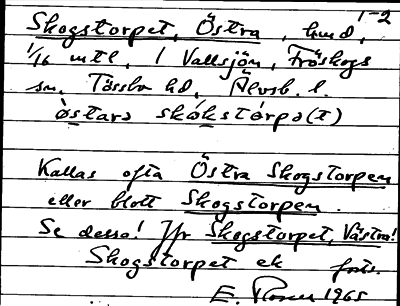 1-2
Skogstorpet, Östra, hmd,
1/16 mtl, i Vallsjön, Fröskogs
sn, Tössbo hd, Älvsb. l.
östara skókstórpə(t)
Kallas ofta Östra Skogstorpen
eller blott Skogstorpen.
Se dessa! Jfr Skogstorpet, Västra!
Skogstorpet ek forts.
E. 1965